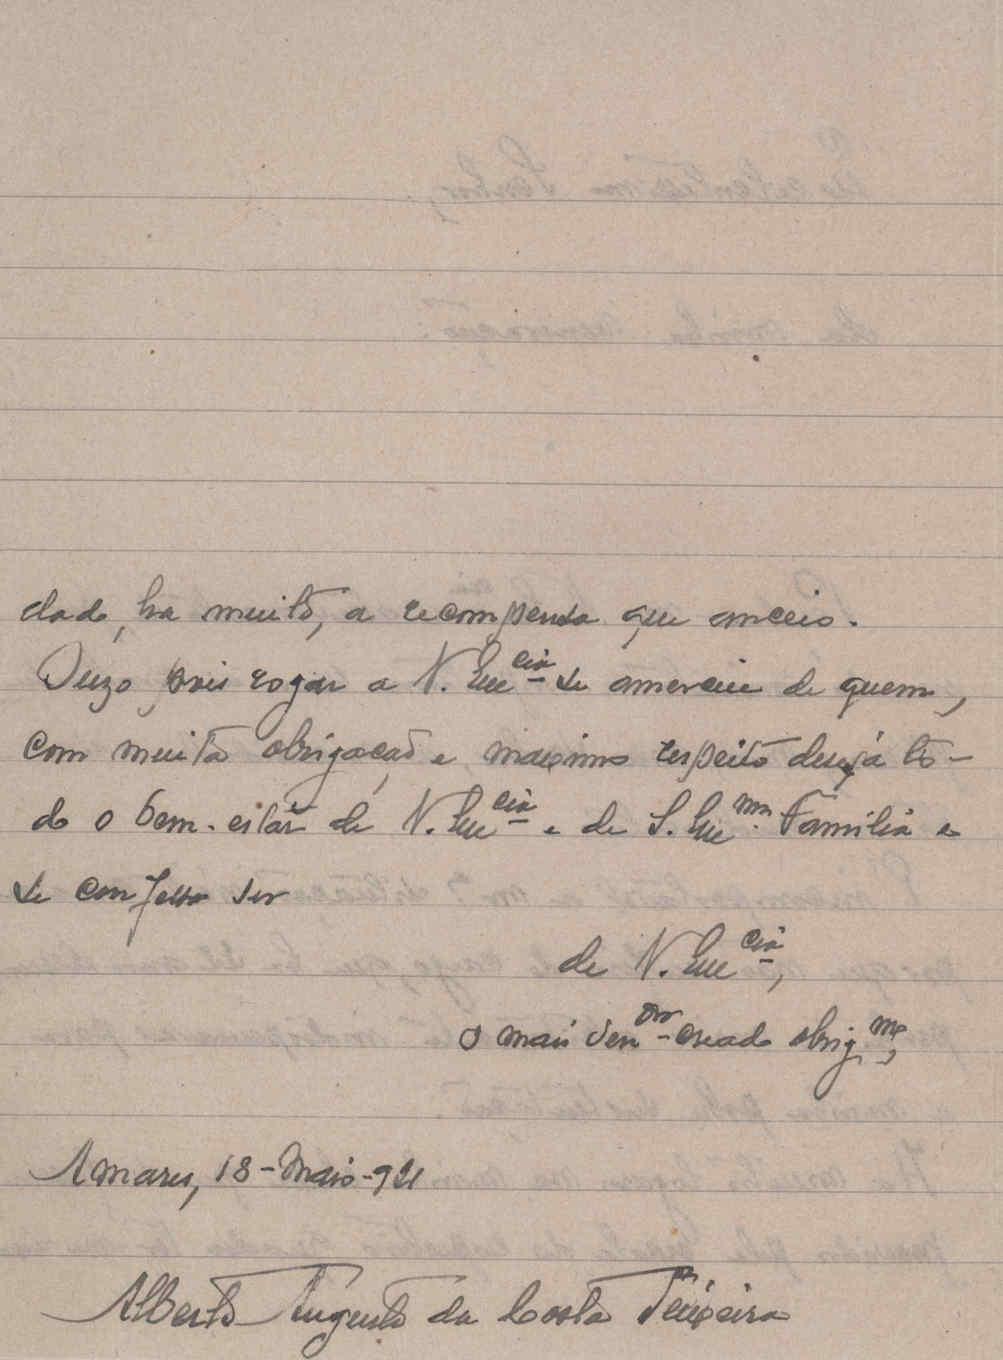 dado, ha muito, a recompensa que anceio.
Ouzo pois rogar a V. Exe cia se amerceie de quem,
com muita obrigação e maximo respeito deseja to-
do o bem-estar de V. Exe cia e de S. Exe ma. Familia e
se confessa ser
de V. Exe cia,
o mais ven or creado obrig. mo,
Amares, 18-Maio-921
Alberto Augusto da Costa Teixeira